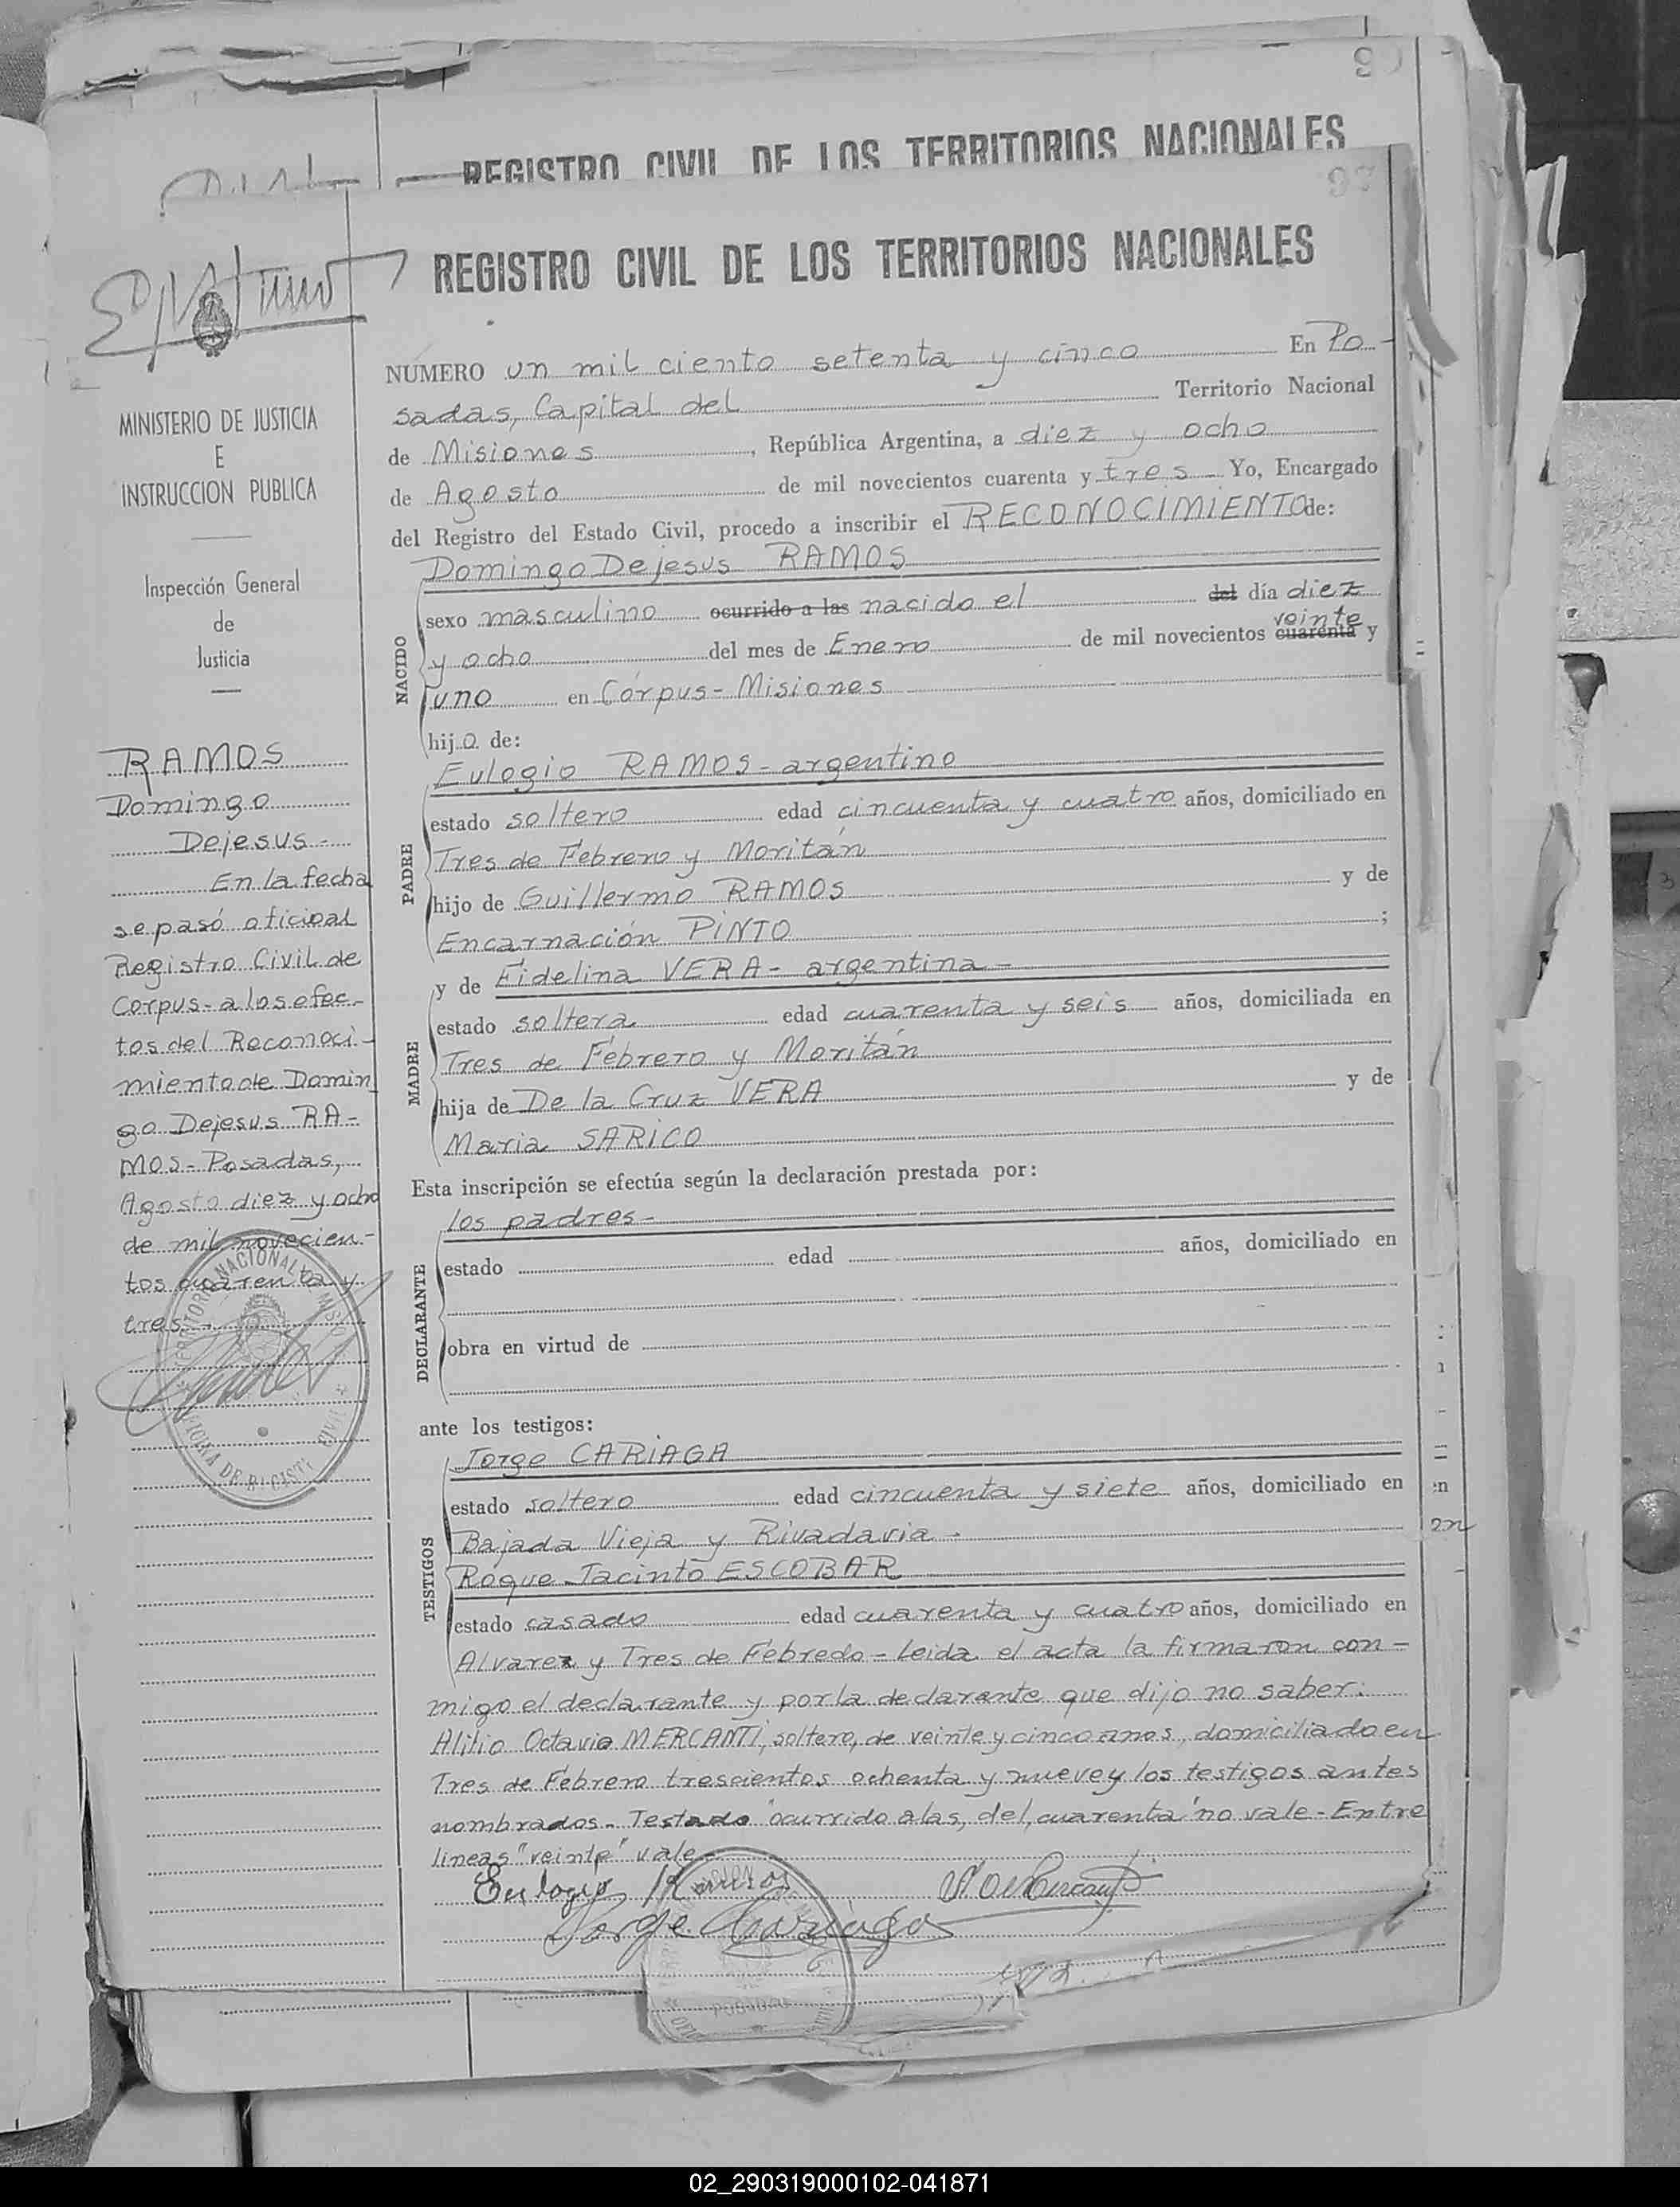 REGISTRO CIVIL DE LOS TERRITORIOS NACIONALES
97
REGISTRO CIVIL DE LOS TERRITORIOS NACIONALES
MINISTERIO DE JUSTICIA
E
INSTRUCCION PUBLICA
Inspección General
de
Justicia
RAMOS
Domingo
Dejesus-
En la fecha
se pasó oficio al
Registro Civil de
Corpus- a los efec-
tos del Reconoci-
miento de Domin
go Dejesus RA-
MOS- Posadas,
Agosto diez y ocho
de mil novecien-
tos cuarenta y
tres.-
NÚMERO un mil ciento setenta y cinco En Po-
sadas, Capital del Territorio Nacional
de Misiones, República Argentina, a diez y ocho
de Agosto de mil novecientos cuarenta y tres- Yo, Encargado
del Registro del Estado Civil, procedo a inscribir el RECONOCIMIENTO de:
NACIDO
Domingo Dejesus RAMOS
sexo masculino ocurrido a las nacido el del día diez
veinte
y ocho del mes de Enero de mil novecientos cuarenta y
uno en Córpus- Misiones
hijo de:
PADRE
Eulogio RAMOS- argentino
estado soltero edad cincuenta y cuatro años, domiciliado en
Tres de Febrero y Moritán
hijo de Guillermo RAMOS y de
Encarnación PINTO;
MADRE
y de Fidelina VERA- argentina-
estado soltera edad cuarenta y seis años, domiciliada en
Tres de Febrero y Moritán
hija de De la Cruz VERA y de
Maria SARICO
Esta inscripción se efectúa según la declaración prestada por:
DECLARANTE
los padres-
estado edad años, domiciliado en
obra en virtud de
ante los testigos:
TESTIGOS
Jorge CARIAGA
estado soltero edad cincuenta y siete años, domiciliado en
Bajada Vieja y Rivadavia-
Roque Jacinto ESCOBAR
estado casado edad cuarenta y cuatro años, domiciliado en
Alvarez y Tres de Febredo- Leida el acta la firmaron con-
migo el declarante y por la declarante que dijo no saber:
Atilio Octavio MERCANTI, soltero, de veinte y cinco anos, domiciliado en
Tres de Febrero trescientos ochenta y nueve y los testigos antes
nombrados- Testado "ocurrido a las, del, cuarenta" no vale- Entre
lineas "veinte" vale-
Eulogio Ramos
Jorge Cariaga
POSADAS
02_290319000102-041871